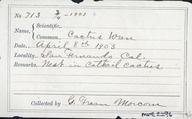 No 713 3/4 - 1903
Name, { Scientific,
Common, Cactus Wren
Date, April 8th 1903
Locality, San Fernando Cal.
Remarks, Nest in Cattail Cactus
Collected by G. Frean Morcom